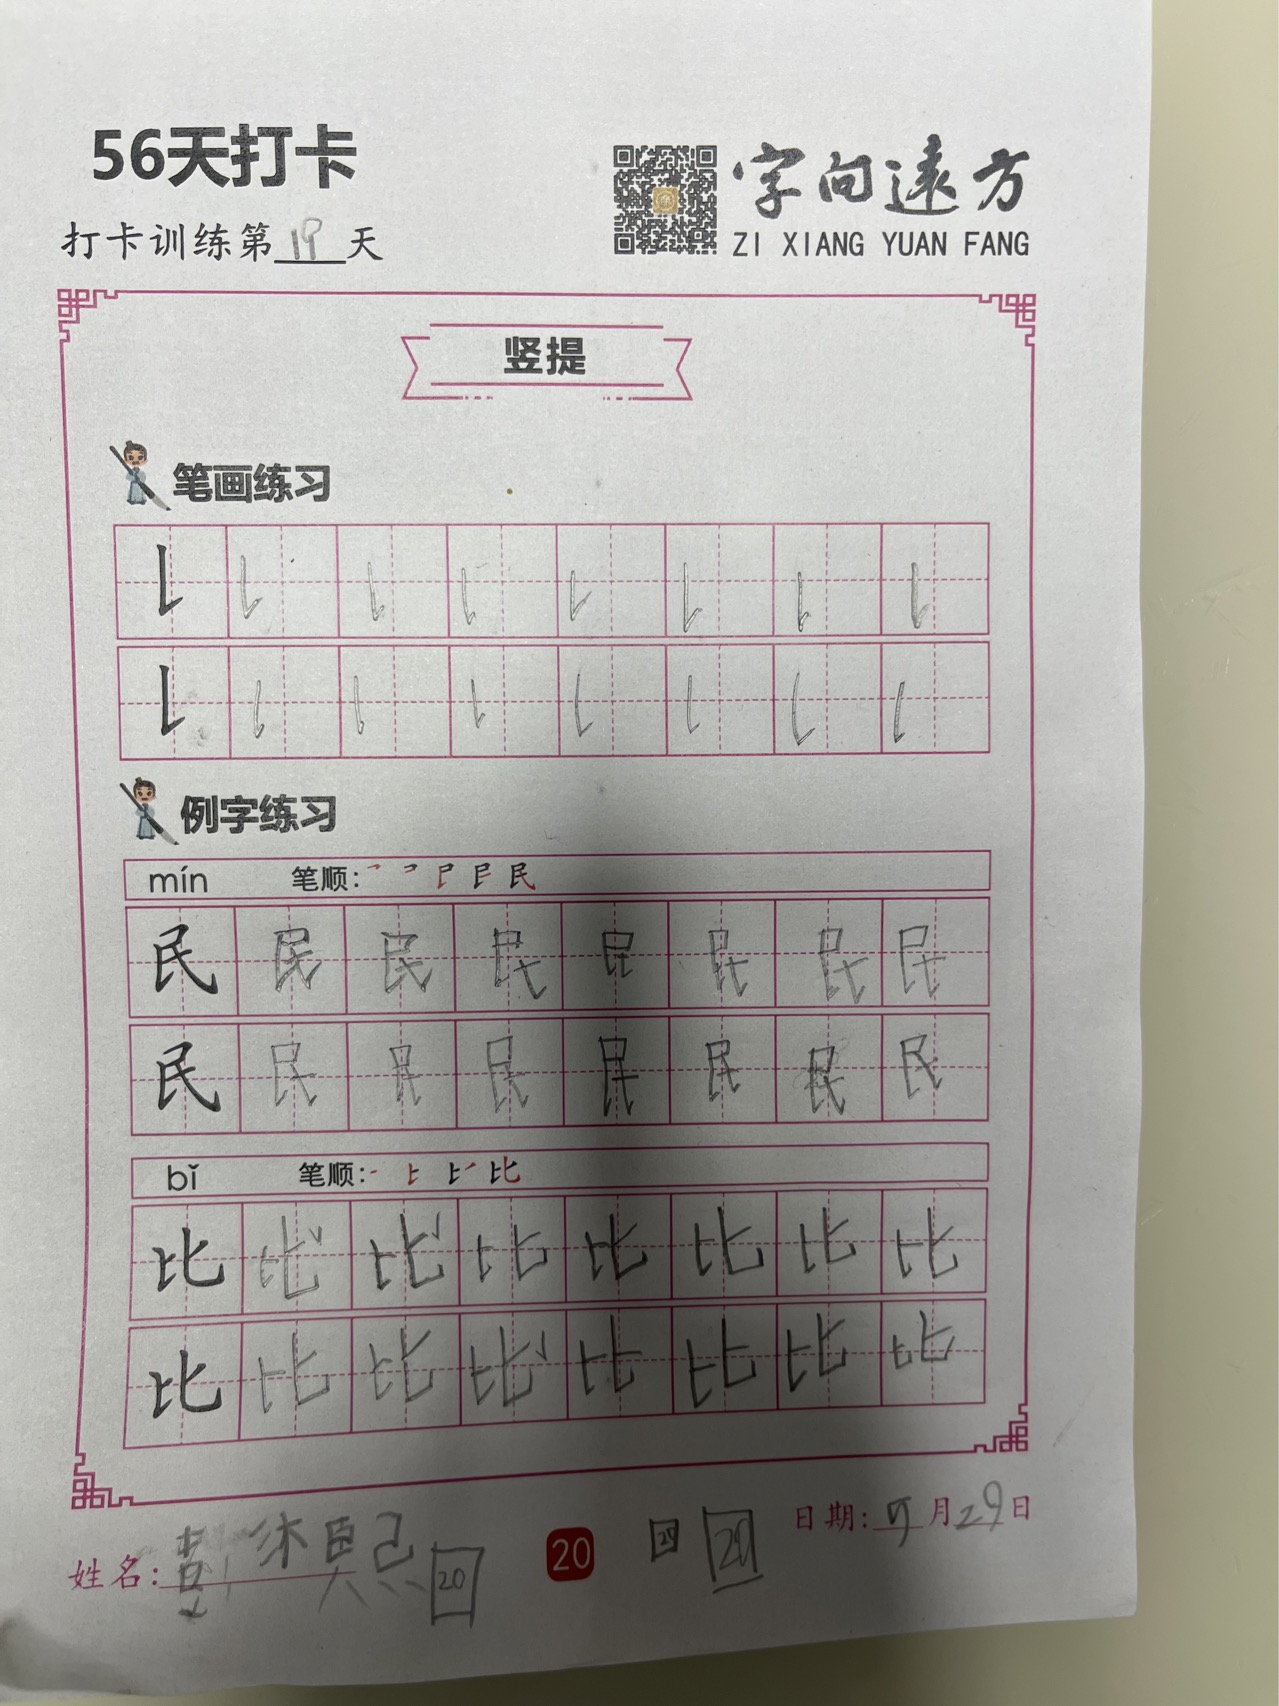 56天打卡
字向远方
打卡训练第19天
ZI XIANG YUAN FANG
竖提
笔画练习
例字练习
mín 笔顺:
民 民 民 民 民 民 民 民
民 民 民 民 民 民 民 民
bǐ 笔顺:
比 比 比 比 比 比 比 比
比 比 比 比 比 比 比 比
日期: 月29日
姓名: 20 20